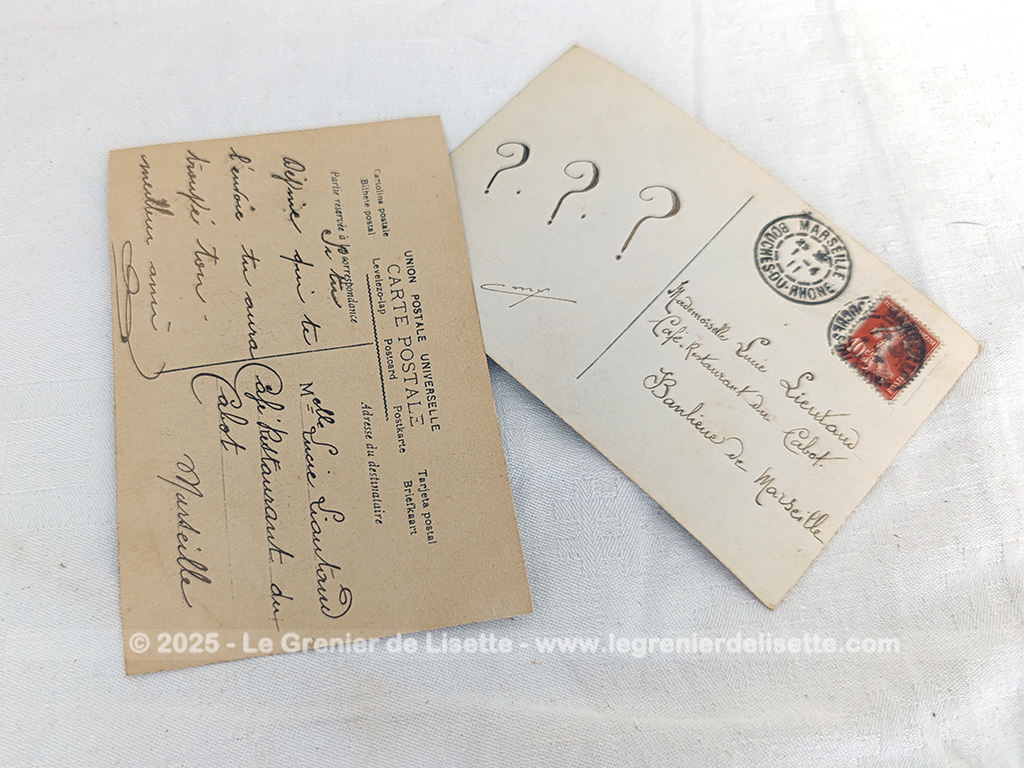 Cartolina postale
Bilhete postal
UNION POSTALE UNIVERSELLE
CARTE POSTALE
Levelezo-lap
Postcard
Postkarte
Tarjeta postal
Briefkaart
Partie réservée à la correspondance
Adresse du destinataire
Si tu
Devine qui te
l'envoie tu auras
trempé ton
meilleur ami
Melle Lucie Lieutaud
Café Restaurant du
Cabot
Marseille
? ? ?
MARSEILLE
1-4
11
BOUCHES-DU-RHONE
10
Mademoiselle Lucie Lieutaud
Café-Restaurant du Cabot.
Banlieue de Marseille
© 2025 - Le Grenier de Lisette - www.legrenierdelisette.com